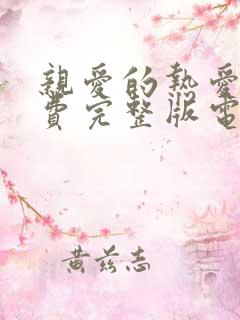 親愛的熱愛
費完整版電
黄兹志